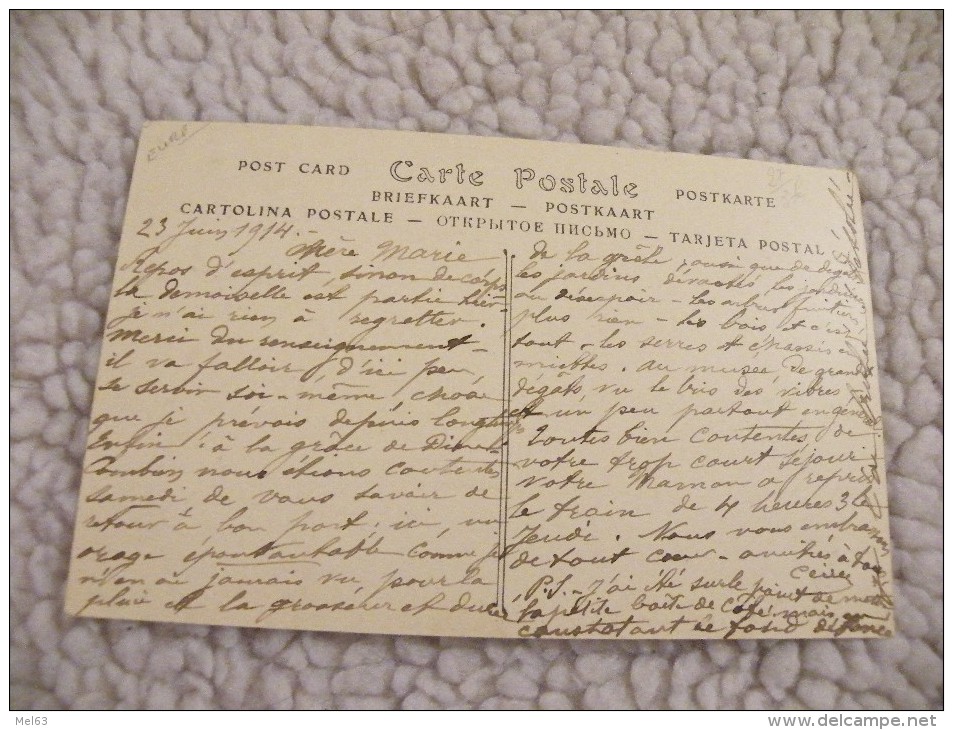 POST CARD Carte Postale POSTKARTE
BRIEFKAART — POSTKAART
CARTOLINA POSTALE — ОТКРЫТОЕ ПИСЬМО — TARJETA POSTAL
23 Juin 1914.-
Marie
Repos d'esprit, sinon de corps
la demoiselle est partie hier
je n'ai rien à regretter.
Merci du renseignement -
il va falloir d'ici peu,
se servir soi-même, chose
que je prévois depuis longtemps
Enfin à la grâce de Dieu -
Combien nous étions contentes
samedi de vous savoir de
retour à bon port; ici, un
orage épouvantable comme je
n'en ai jamais vu pour la
pluie et la grosseur et durée
de la grêle, aussi que de dégâts
les jardins dévastés, les
au désespoir - les arbres fruitiers
plus rien - les bois et
tout - les serres et châssis en
miettes. au musée de grands
dégâts, vu le bris des vitres
et un peu partout en général
Toutes bien contentes de
votre trop court séjour
Votre Maman a repris
le train de 4 heures 3
Jeudi. Nous vous embrassons
de tout coeur - amitiés à tous
P.S. - J'ai été sur le point de mettre
la petite boîte de côté, mais en
constatant ce fond défoncé
Mel63
delcampe.net